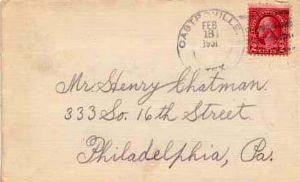 CASTROVILLE
FEB
18
1931
TEX
Mr. Henry Chatman.
333 So. 16th Street.
Philadelphia, Pa.